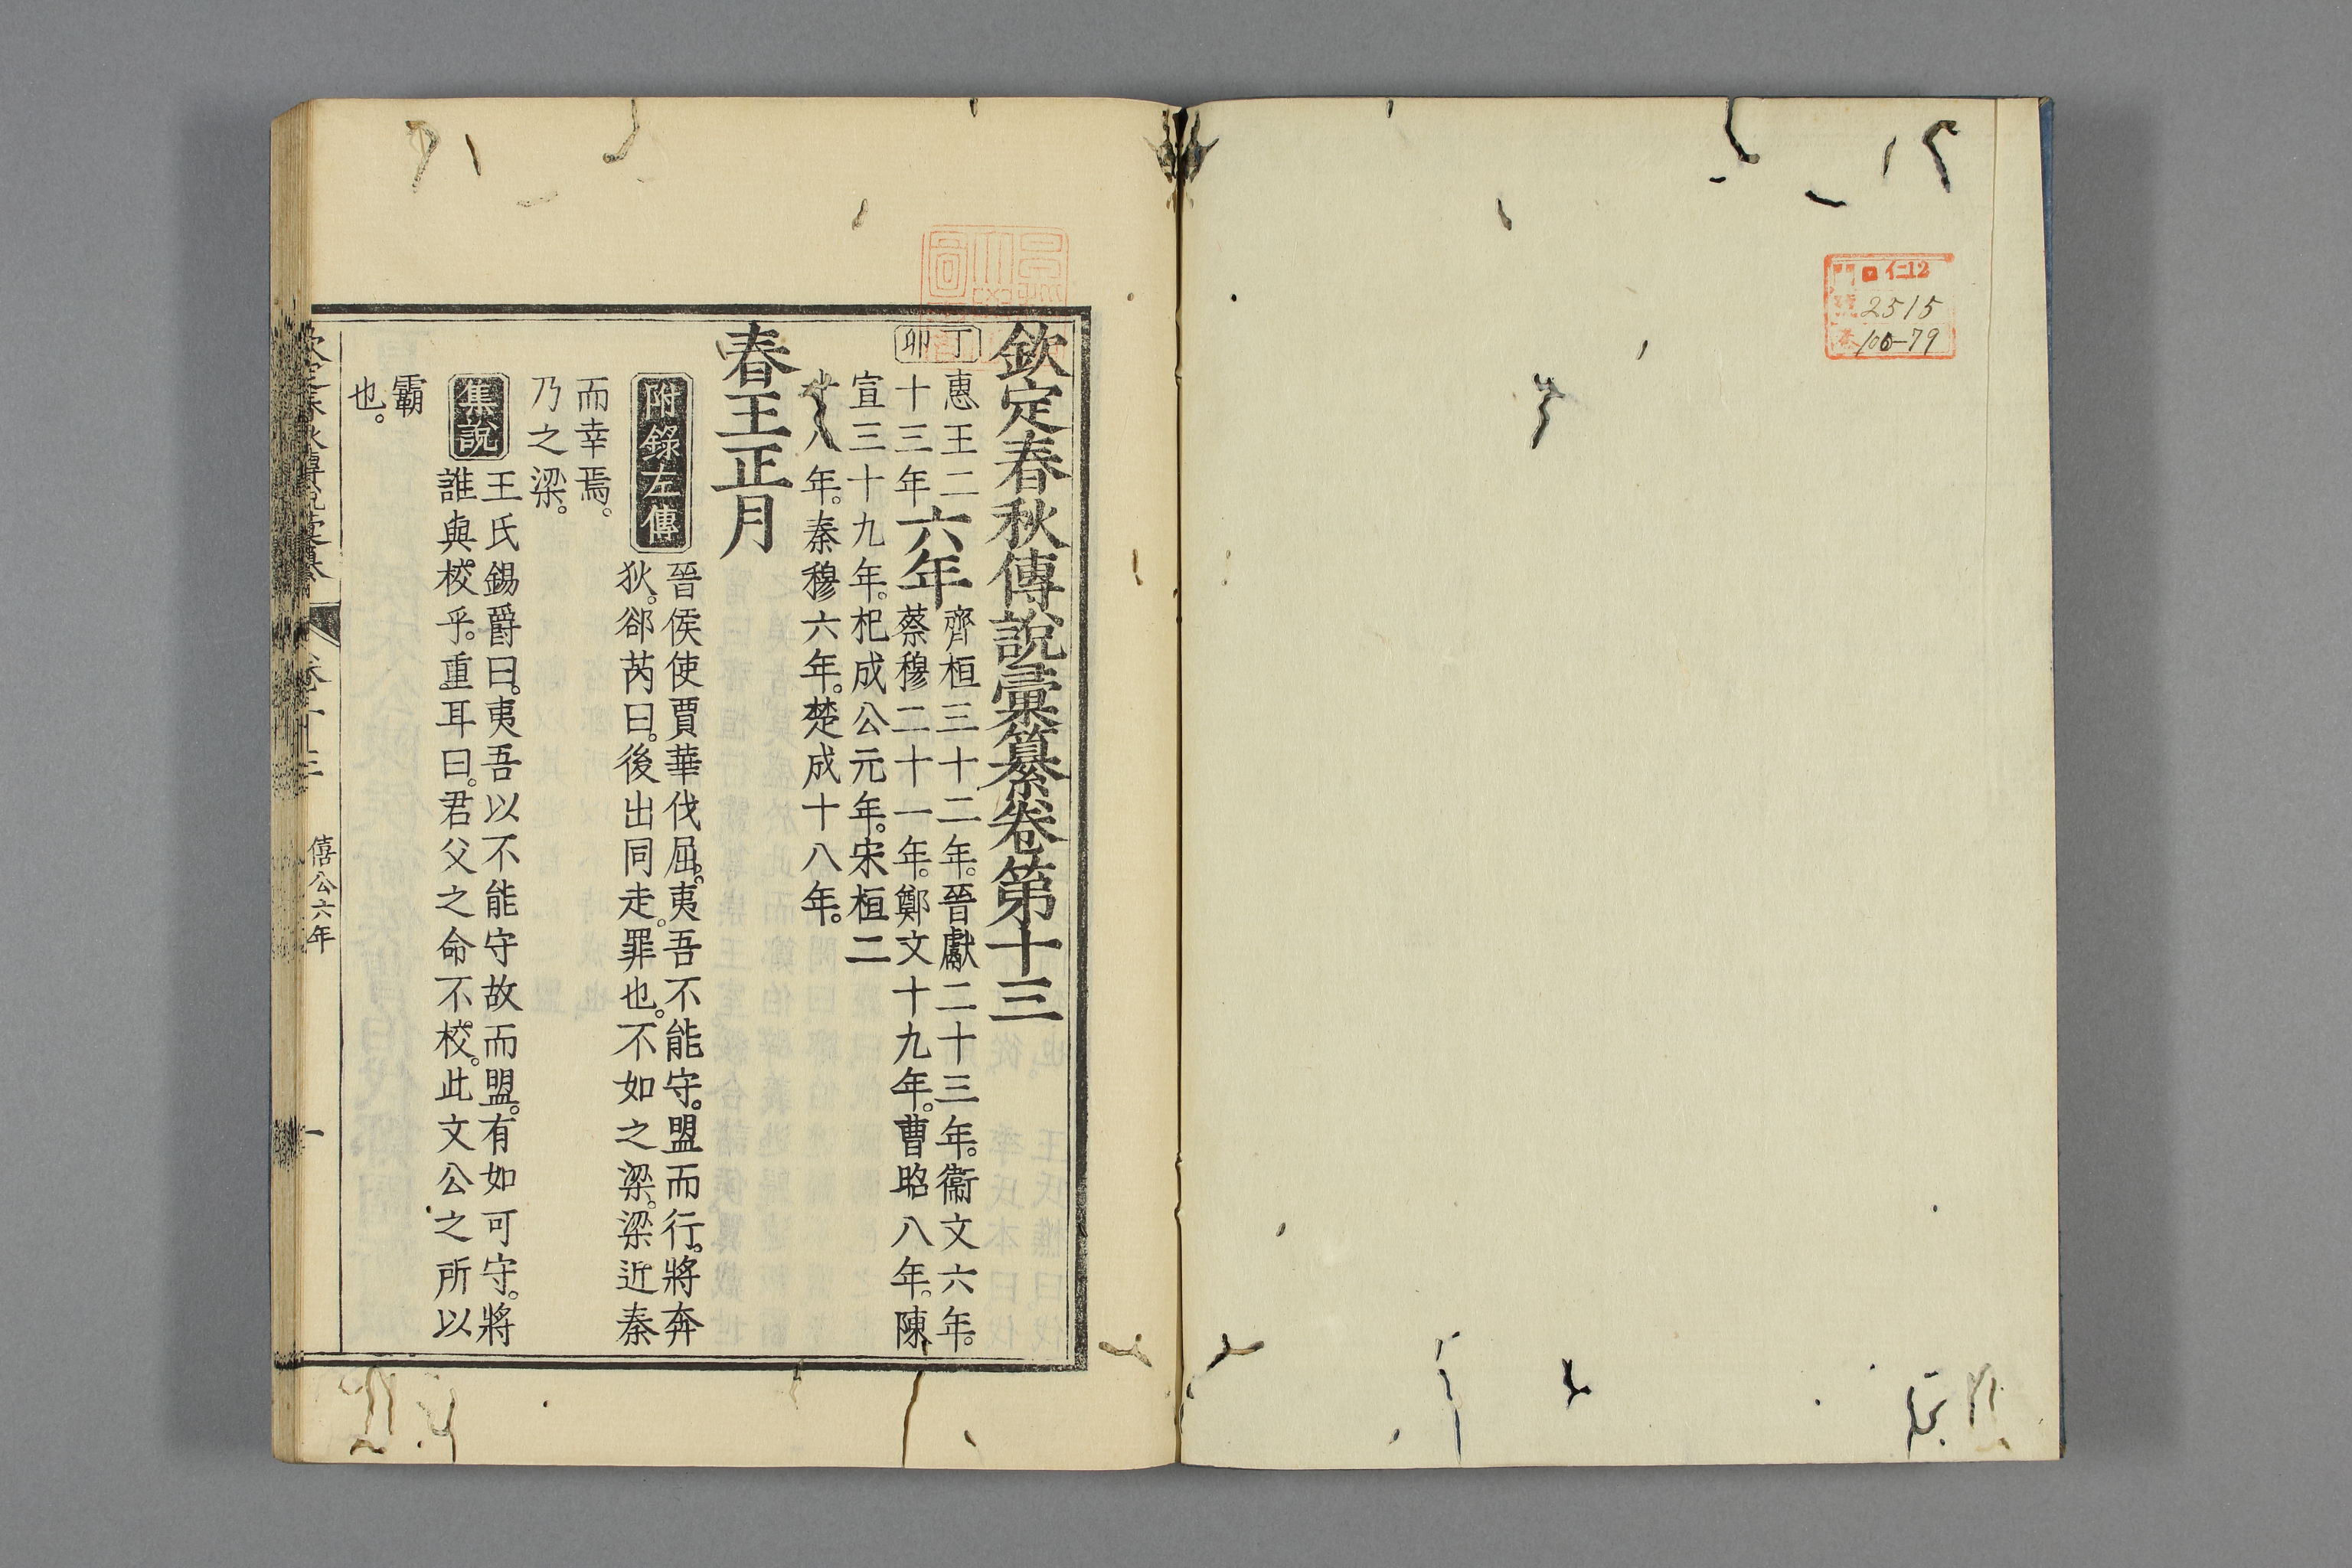 仁12
號 2515
卷 100-79
欽定春秋傳說彙纂卷第十三
丁卯
惠王二
十三年
六年
齊桓三十二年。晉獻二十三年。衞文六年。
蔡穆二十一年。鄭文十九年。曹昭八年。陳
宣三十九年。杞成公元年。宋桓二
十八年。秦穆六年。楚成十八年。
春王正月
附錄左傳
晉侯使賈華伐屈。夷吾不能守。盟而行。將奔
狄。郤芮曰。後出同走。罪也。不如之梁。梁近秦
而幸焉。
乃之梁。
集說
王氏錫爵曰。夷吾以不能守故而盟。有如可守。將
誰與校乎。重耳曰。君父之命不校。此文公之所以
霸
也。
欽定春秋傳說彙纂 卷十三 僖公六年 一